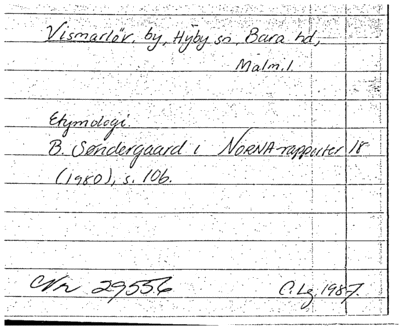 Vismarlöv, by, Hyby sn, Bara hd,
Malm. l.
Etymologi.
B. Søndergaard i NORNA-rapporter 18
(1980), s. 106.
CNr 29556
C. Lg. 1987.